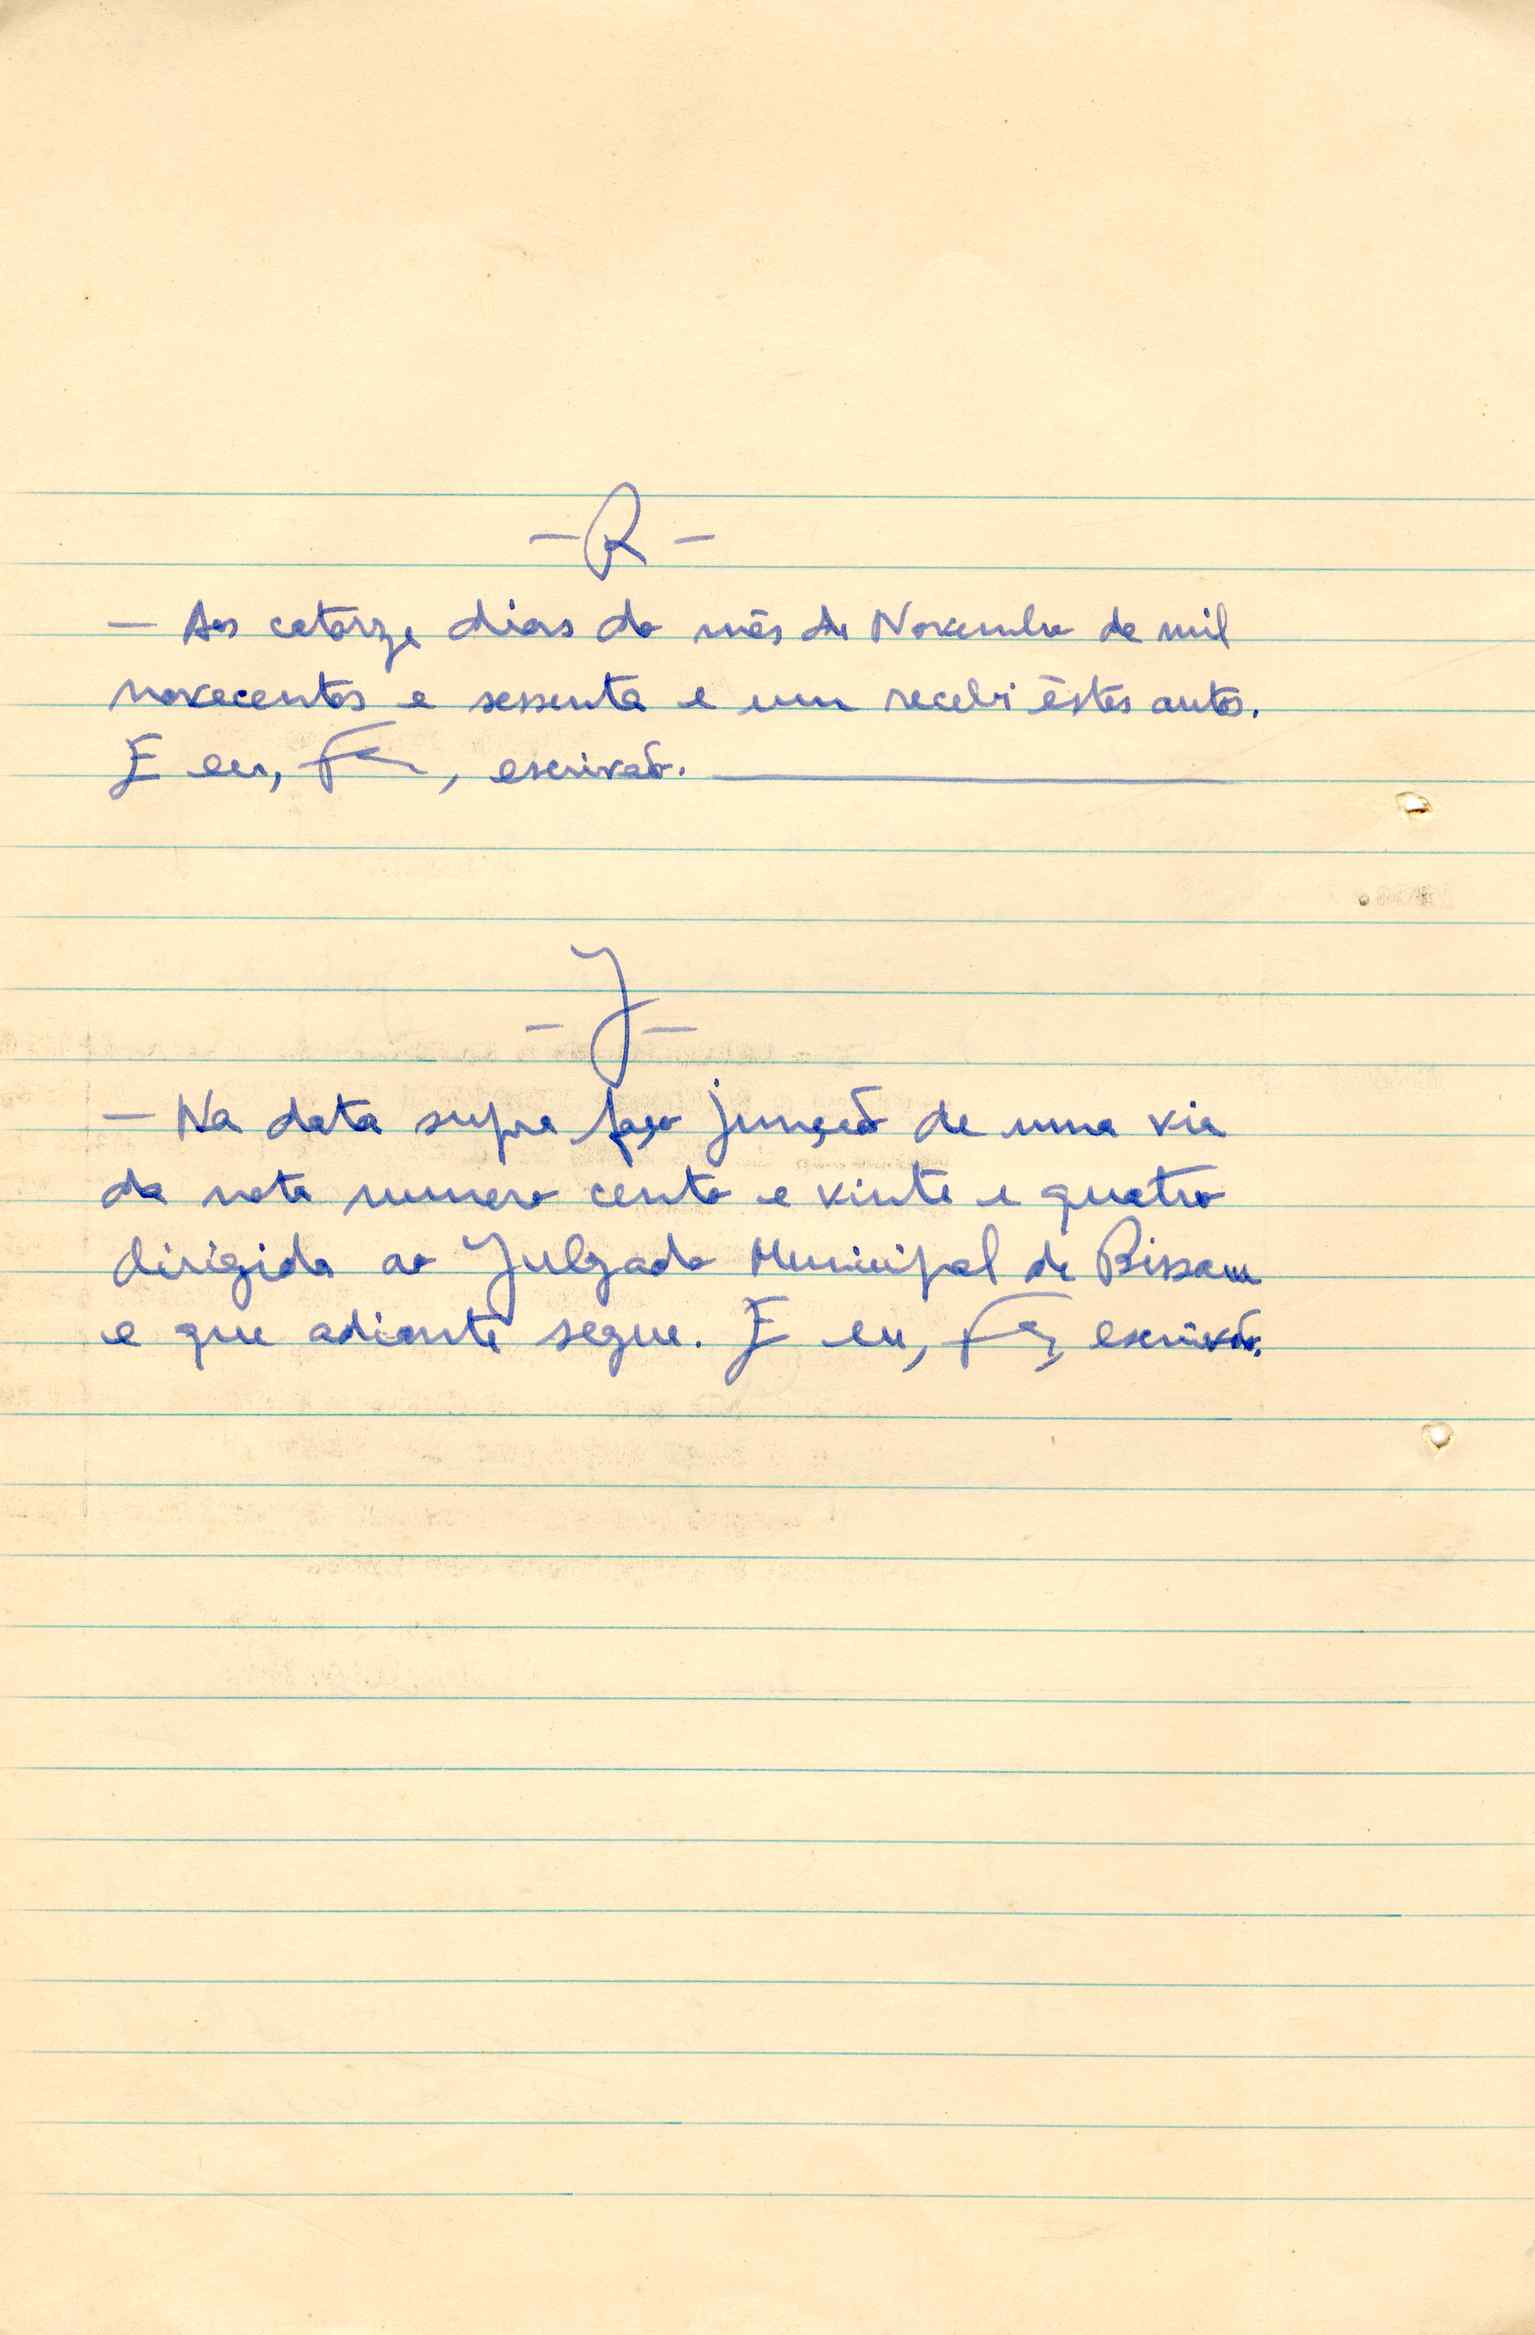 - R -
- Aos catorze dias do mês de Novembro de mil
novecentos e sessenta e um recebi êstes autos.
E eu, , escrivão.
- J -
- Na data supra faço junção de uma via
da nota numero cento e vinte e quatro
dirigida ao Julgado Municipal de Bissau
e que adiante segue. E eu, , escrivão.